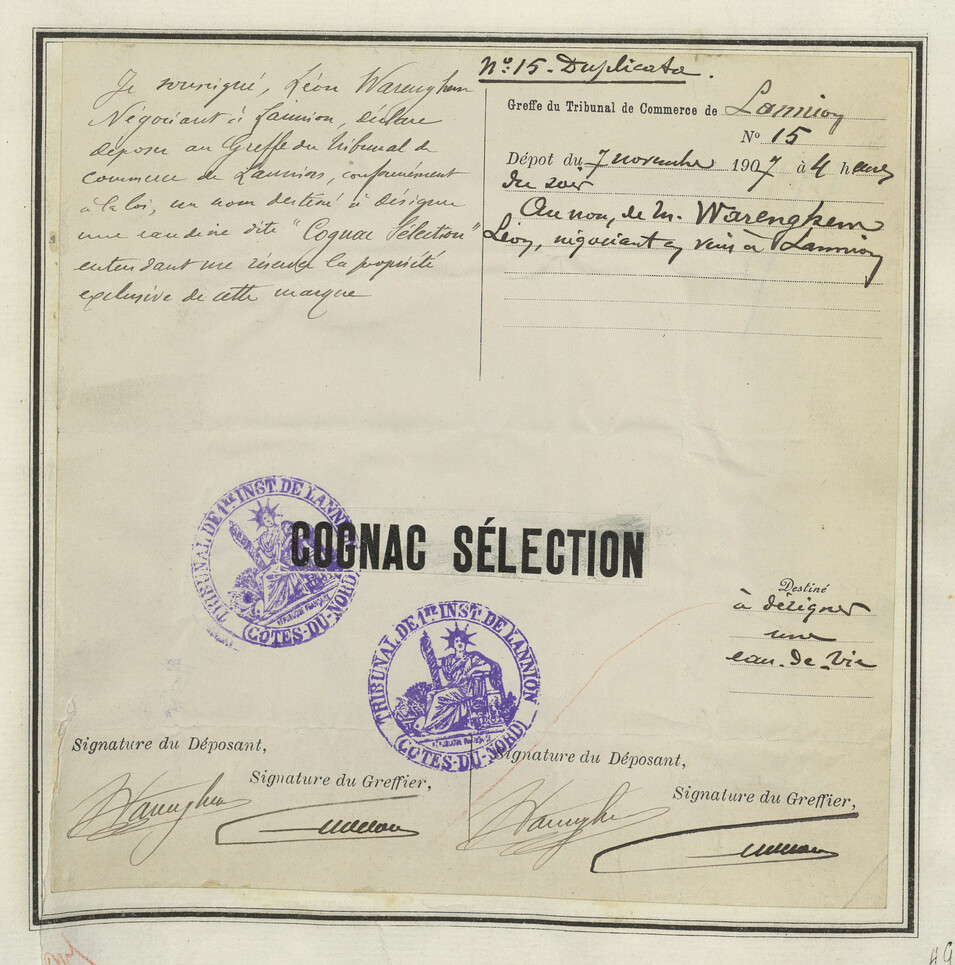 Je soussigné, Léon Warenghem
Négociant à Lannion, déclare
déposer au Greffe du Tribunal de
commerce de Lannion, conformément
à la loi, un nom destiné à désigner
une eau de vie dite "Cognac Sélection"
entendant me réserver la propriété
exclusive de cette marque
No: 15 - Duplicata.
Greffe du Tribunal de Commerce de Lannion
No 15
Dépot du 7 novembre 1907 à 4 heures
du soir
Au nom de M. Warenghem
Léon, négociant en vins à Lannion
TRIBUNAL DE 1RE INST. DE LANNION
RÉPUBLIQUE FRANÇAISE
(CÔTES-DU-NORD)
COGNAC SÉLECTION
TRIBUNAL DE 1RE INST. DE LANNION
RÉPUBLIQUE FRANÇAISE
(CÔTES-DU-NORD)
Destiné
à désigner
une
eau-de-vie
Signature du Déposant,
Signature du Greffier,
Warenghem
Signature du Déposant,
Signature du Greffier,
Warenghem
49